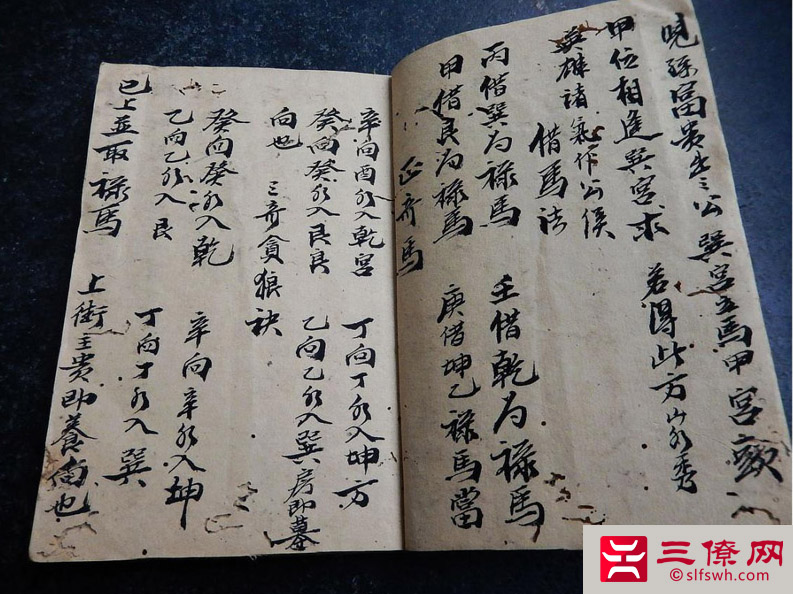 兒孫富貴生三公 巽宮立馬甲宮
甲位相逢巽宮求 若得此方山水秀
英雄諸氣作公侯
借馬法
丙借巽为祿馬 壬借乾为祿馬
甲借艮为祿馬 庚借坤乙祿馬當
正齐馬
辛向酉水入乾宮 丁向丁水入坤方
癸向癸水入艮艮 乙向乙水入巽房即墓
向也 三奇貪狼訣
癸向癸水入乾 辛向辛水入坤
乙向乙水入艮 丁向丁水入巽
已上並取祿馬 上街主貴即養向也
三僚网
slfswh.com